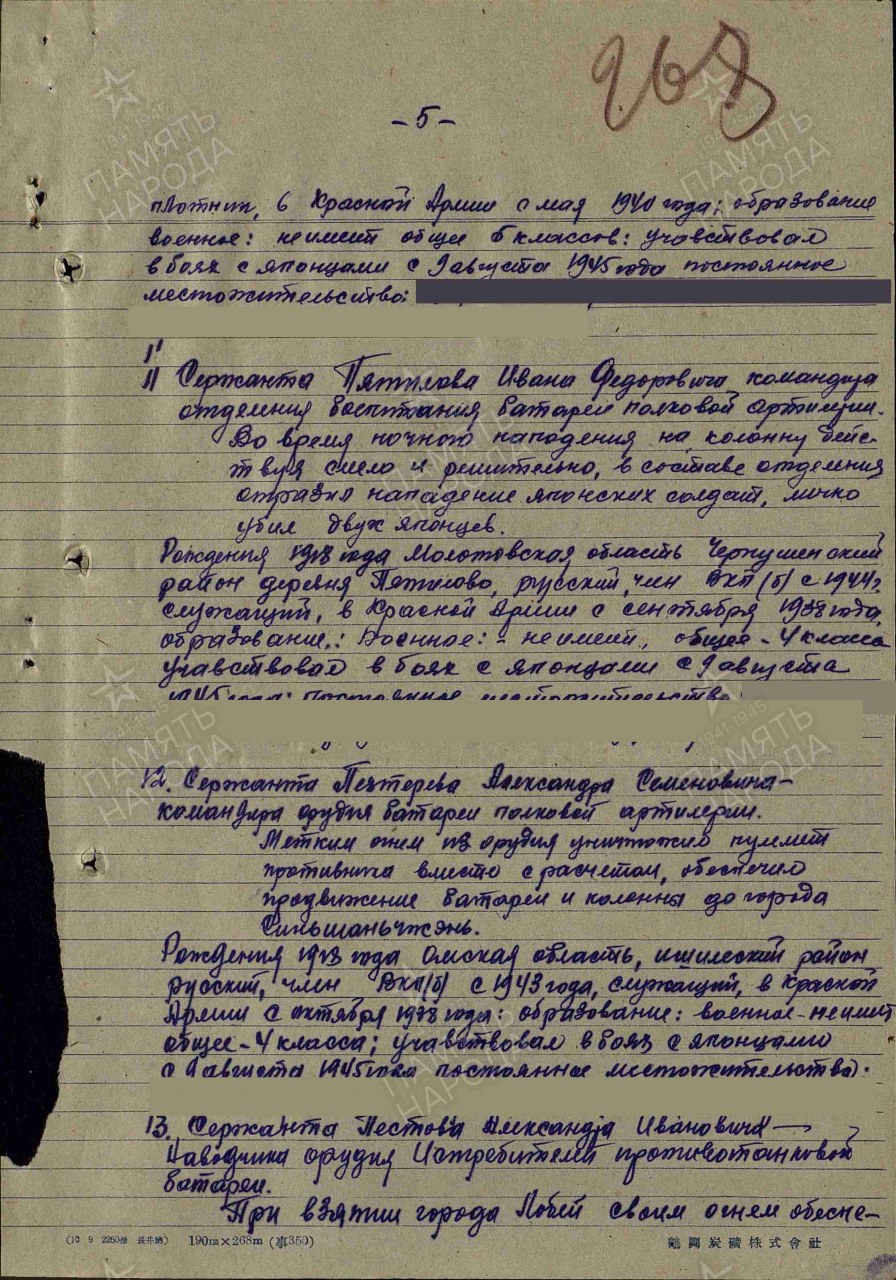 268
- 5 -
плотник, в Красной Армии с мая 1940 года; образование
военное: неимеет общее 5 классов: учавствовал
в боях с японцами с 9 августа 1945 года постоянное
местожительство:
11 Сержанта Пятилова Ивана Федоровича командира
отделения батареи полковой артилерии.
Во время ночного нападения на колонну дейс-
твуя смело и решительно, в составе отделения
отразил нападение японских солдат, лично
убил двух японцев.
Рождения 1918 года Молотовская область Чернушенский
район деревня Пятилово, русский, член ВКП(б) с 1944г.
служащий, в Красной Армии с сентября 1938 года,
образование: Военное: - неимеет, общее - 4 класса
учавствовал в боях с японцами с 9 августа
1945 года: постоянное местожительство:
12. Сержанта Пехтерева Александра Семеновича -
командира орудия батареи полковой артилерии.
Метким огнем из орудия уничтожил пулемет
противника вместе с расчетом, обеспечил
продвижение батареи и колонны до города
Синьшаньчжэнь.
Рождения 1918 года Омская область, ишимский район
русский, член ВКП(б) с 1943 года, служащий, в Красной
Армии с октября 1938 года: образование: военное - неимеет
общее - 4 класса; учавствовал в боях с японцами
с 9 августа 1945 года постоянное местожительства:
13. Сержанта Пестова Александра Ивановича -
Наводчика орудия Истребительной противотанковой
батареи.
При взятии города Лобей своим огнем обеспе-
190m×268m (事350) 鶴岡炭礦株式會社